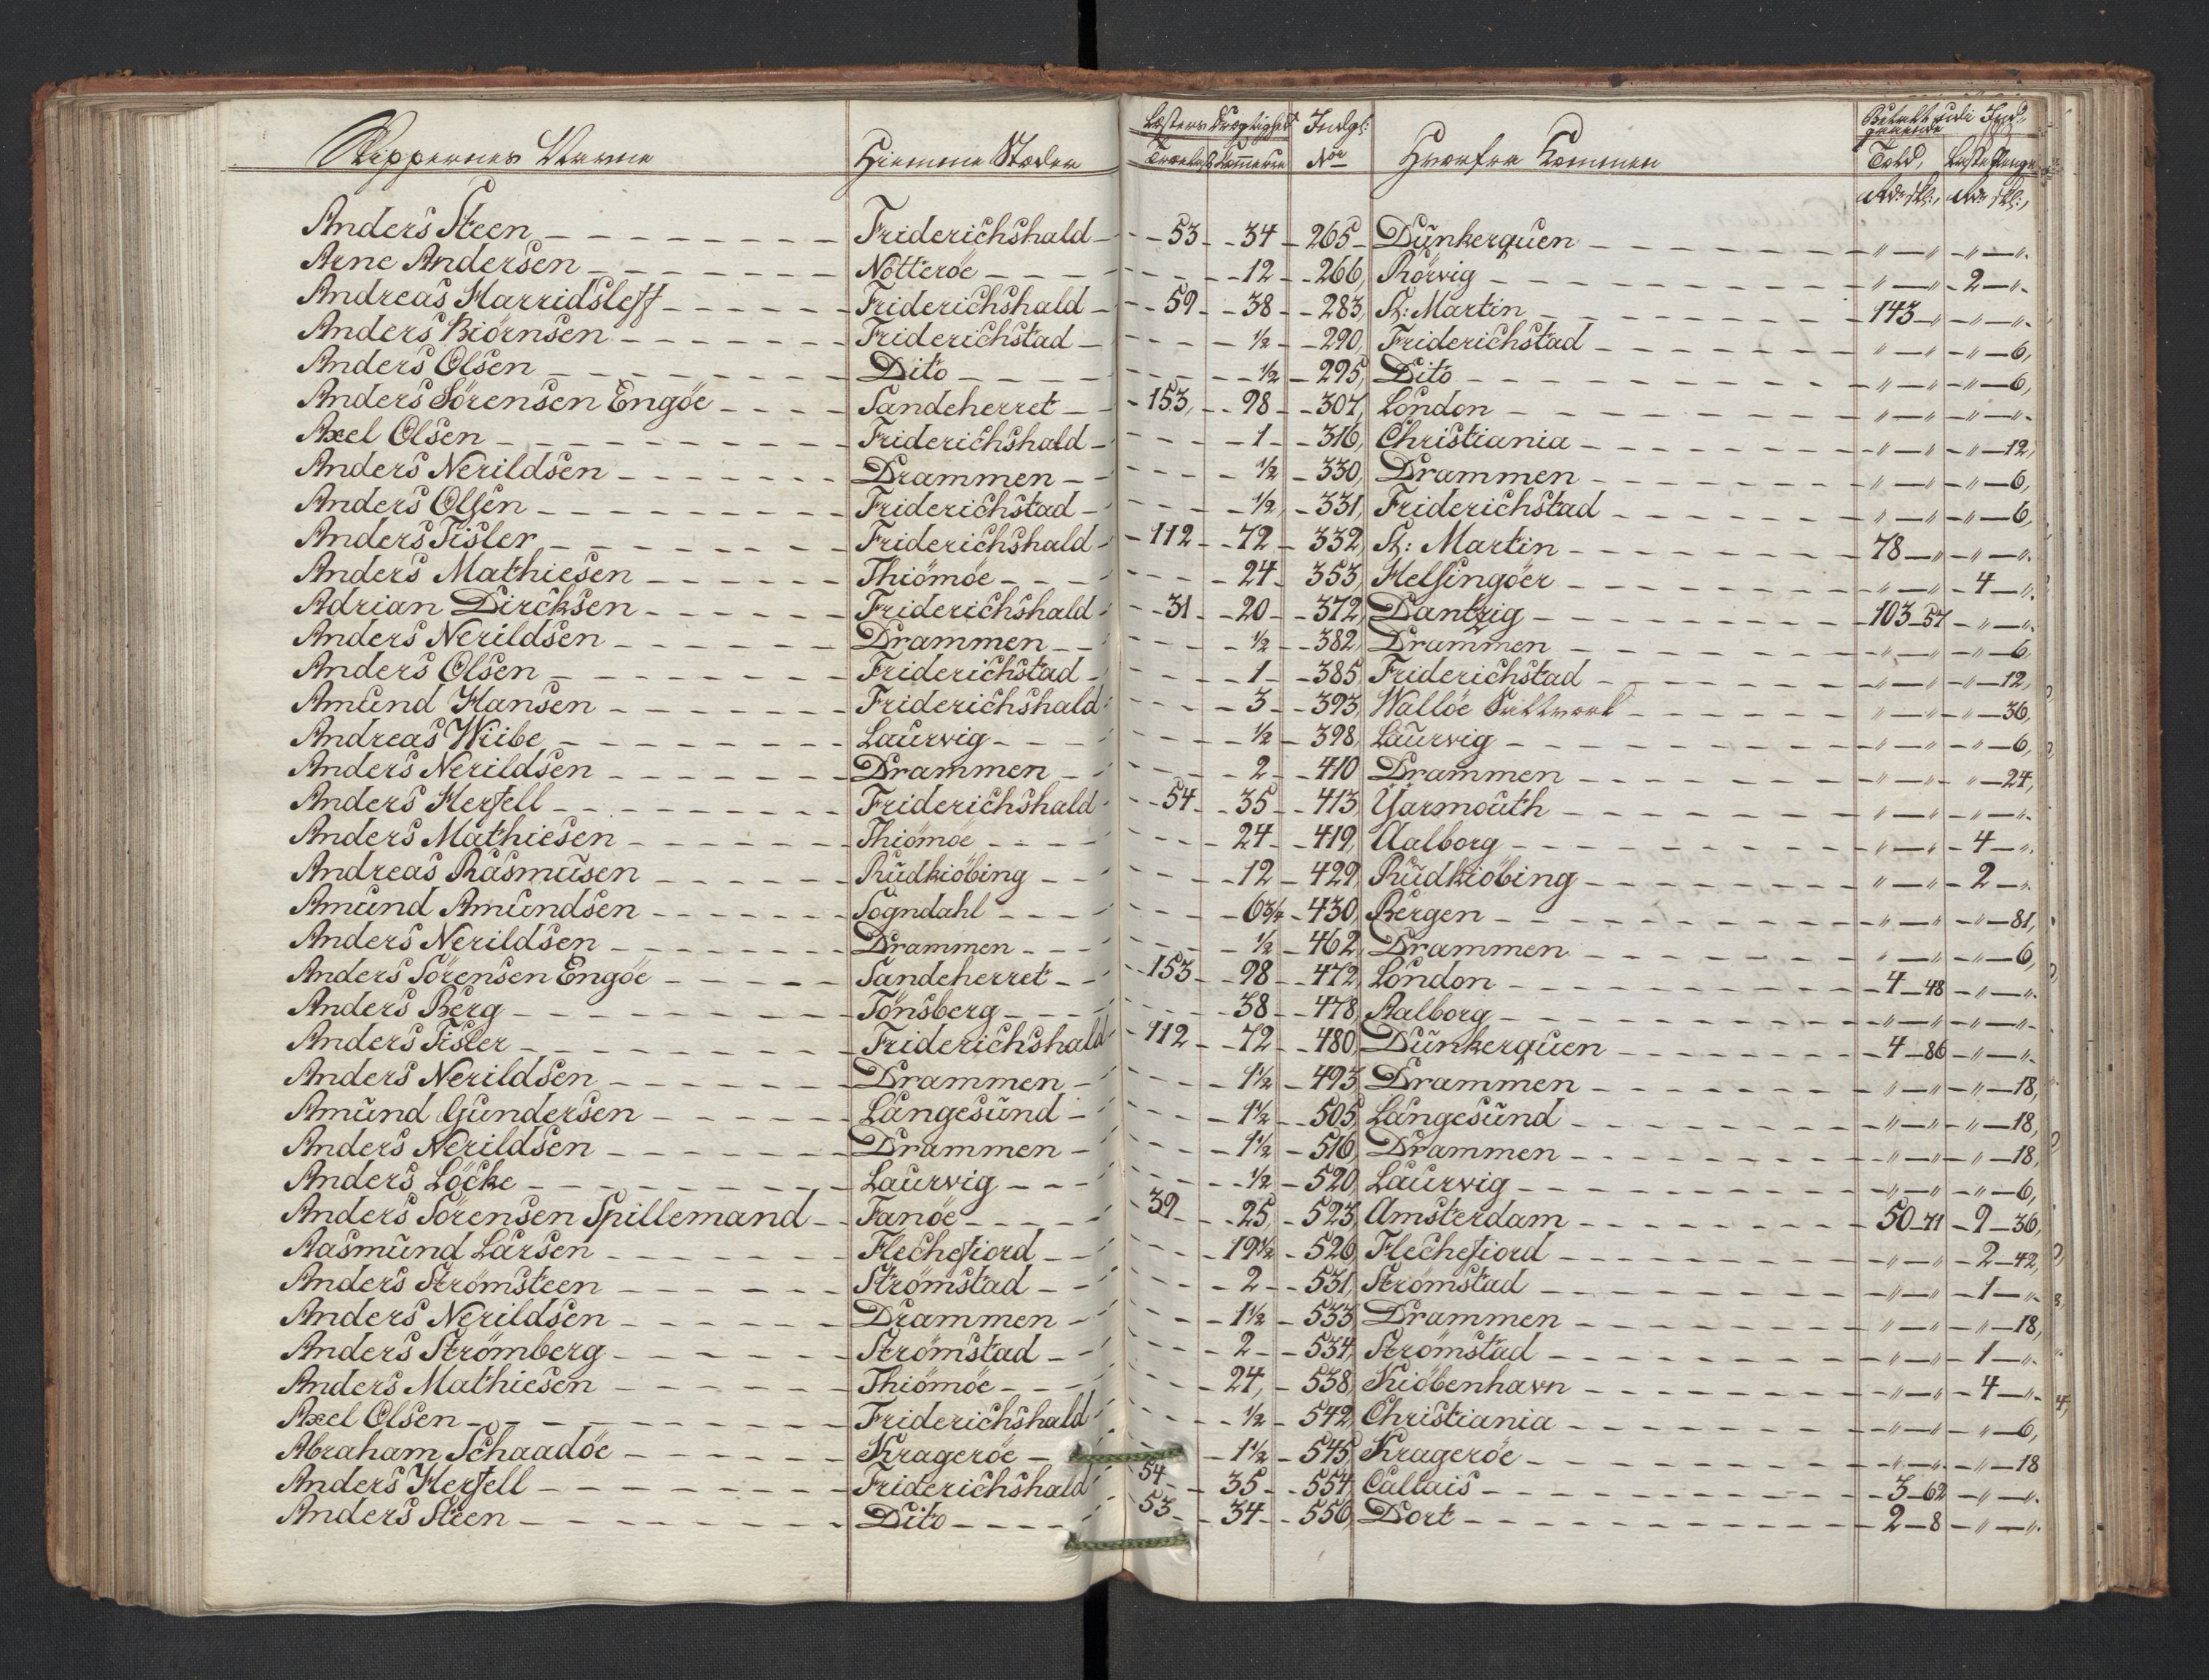 Skippernes Navne Hiemme Stæder Læsters Drægtighed Indgl: Hvorfra Kommen Betalt udi Ind-
gaaende
Trælast Commerce No Told, Læstepenge
Rdr skl:, Rdr skl:,
Anders Steen Friderichshald 53 34 265 Dünkerquen " " " "
Arne Andersen Nötteröe 12 266, Rörvig " " 2 "
Andreas Harridsleff Friderichshald 59 38 283, St: Martin 143 " " "
Anders Biörnsen Friderichstad ½ 290, Friderichstad " " " 6,
Anders Olsen Dito ½ 295, Dito " " " 6,
Anders Sörensen Engöe Sandeherret 153, 98 307, London " " " "
Axel Olsen Friderichshald 1 316, Christiania " " " 12,
Anders Nerildsen Drammen ½ 330, Drammen " " " 6,
Anders Olsen Friderichstad ½ 331, Friderichstad " " " 6,
Anders Tisler Friderichshald 112 72 332, St: Martin 78 " " "
Anders Mathiesen Thiömöe 24 353, Helsingöer " " 4 "
Adrian Dircksen Friderichshald 31 20 372, Dantzig 103 57 " "
Anders Nerildsen Drammen ½ 382, Drammen " " " 6
Anders Olsen Friderichstad 1 385, Friderichstad " " " 12,
Amünd Hansen Friderichshald 3 393, Wallöe Saltværk " " " 36,
Andreas Wiibe Laürvig ½ 398, Laürvig " " " 6,
Anders Nerildsen Drammen 2 410 Drammen " " " 24,
Anders Herfell Friderichshald 54 35 413, Yarmoüth " " " "
Anders Mathiesen Thiömöe 24 419, Aalborg " " 4 "
Andreas Rasmüsen Rüdkiöbing 12 429, Rüdkiöbing " " 2 "
Amünd Amündsen Sogndahl 6¾ 430, Bergen " " " 81,
Anders Nerildsen Drammen ½ 462, Drammen " " " 6,
Anders Sörensen Engöe Sandeherret 153 98 472, London 4 48 " "
Anders Berg Tönsberg 38 478, Aalborg " " " "
Anders Tisler Friderichshald 112 72 480, Dünkerqüen 4 86 " "
Anders Nerildsen Drammen 1½ 493, Drammen " " " 18,
Amünd Gundersen Langesünd 1½ 505, Langesünd " " " 18,
Anders Nerildsen Drammen 1½ 516, Drammen " " " 18,
Anders Löcke Laürvig ½ 520, Laürvig " " " 6,
Anders Sörensen Spillemand Fanöe 39 25, 523, Amsterdam 50 71 9 36,
Aasmünd Larsen Flechefiord 19½ 526, Flechefiord " " 2 42,
Anders Strömsteen Strömstad 2 531, Strömstad " " 1 "
Anders Nerildsen Drammen 1½ 533, Drammen " " " 18,
Anders Strömberg Strömstad 2 534, Strömstad " " 1 "
Anders Mathiesen Thiömöe 24, 538, Kiöbenhavn " " 4 "
Axel Olsen Friderichshald ½ 542, Christiania " " " 6,
Abraham Schaadöe Krageröe 1½ 545, Krageröe " " " 18
Anders Herfell Friderichshald 54 35 554, Callais 3 62 " "
Anders Steen Dito 53 34 556, Dort 2 8 " "